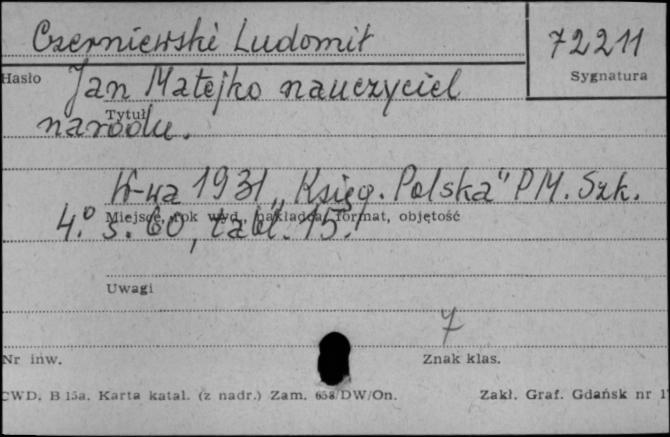 Czerniewski Ludomił
72211
Hasło
Sygnatura
Jan Matejko nauczyciel
Tytuł
narodu.
W-wa 1931 „Księg. Polska" P.M. Szk.
Miejsce, rok wyd., nakładca, format, objętość
4.° s. 60, tabl. 15.
Uwagi
7
Nr inw.
Znak klas.
CWD. B 15a. Karta katal. (z nadr.) Zam. 658/DW/On.
Zakł. Graf. Gdańsk nr